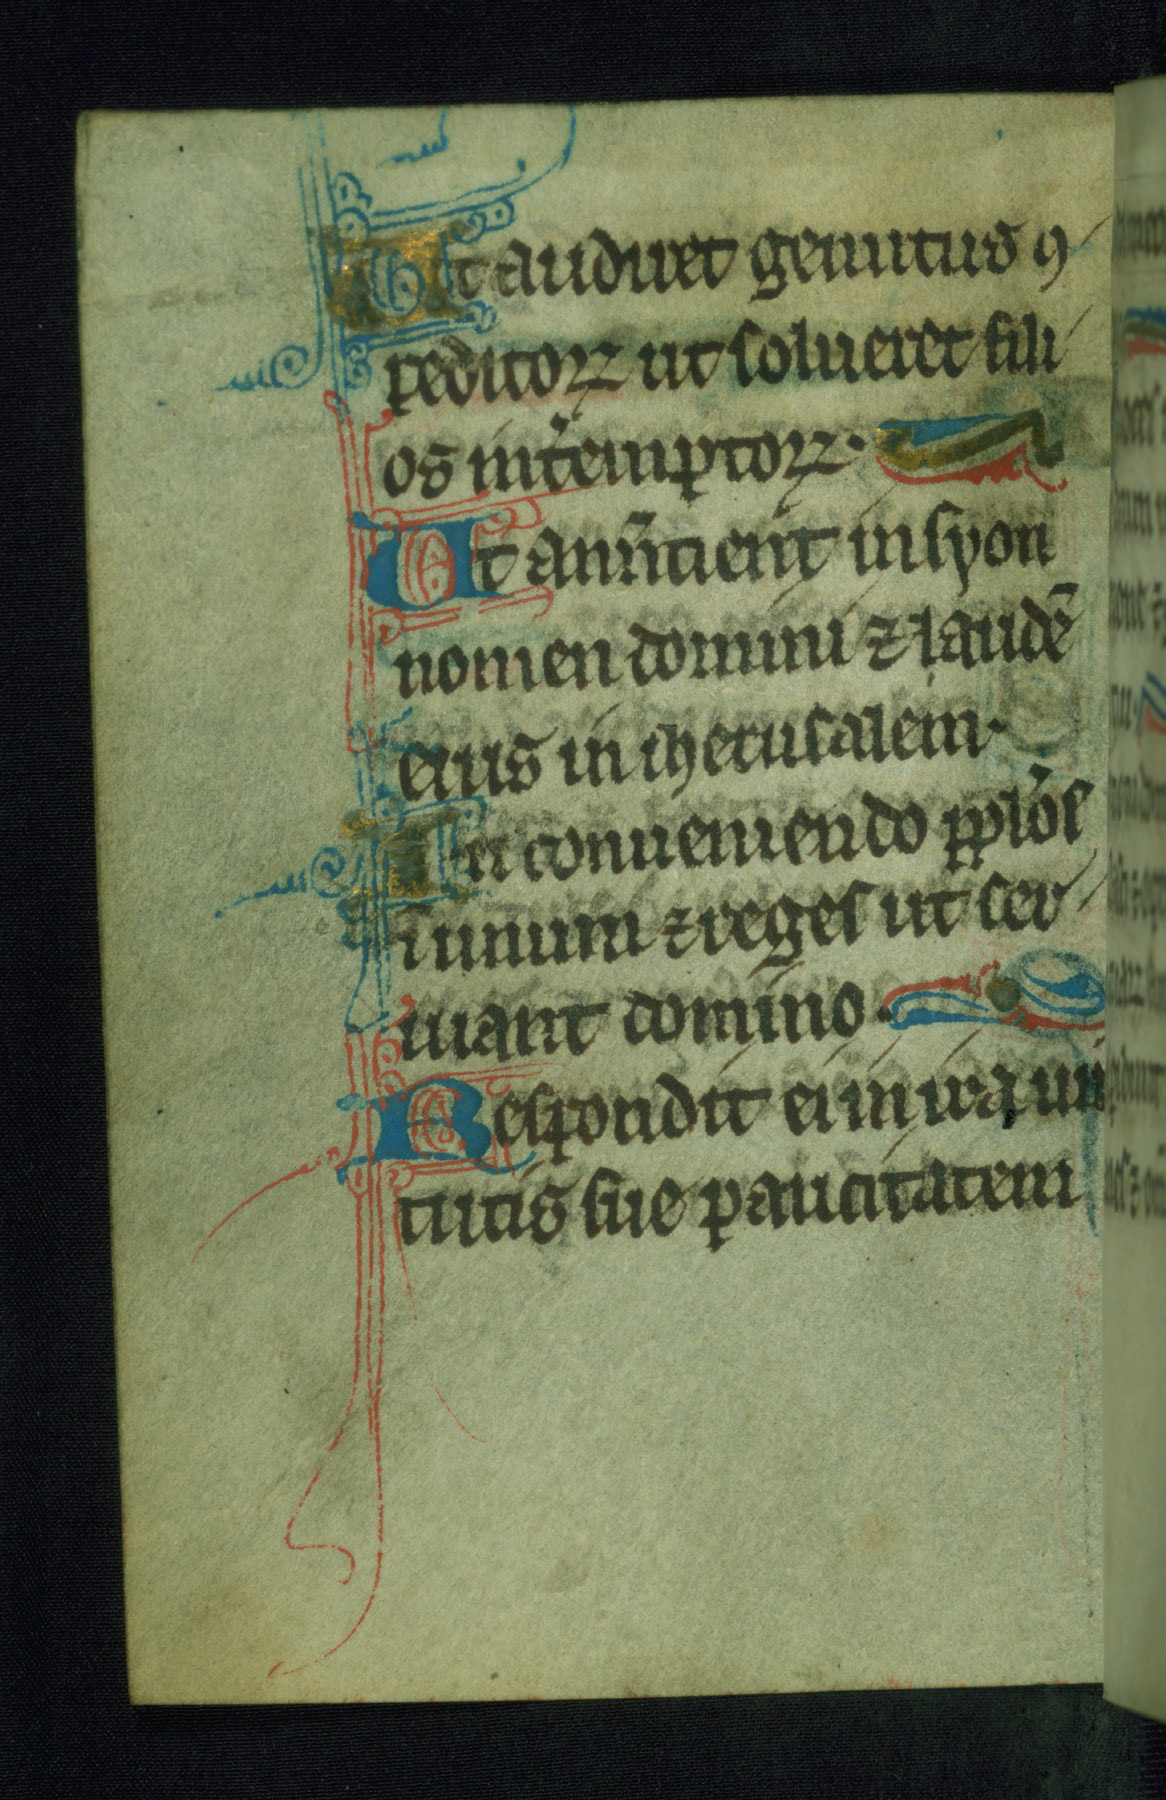 Ut audiret gemitus ꝯ
peditoꝝ ut solueret fili
os int̾emptoꝝ.
Ut anūtient in syon
nomen domini ⁊ laudē
eius in iherusalem.
In conueniendo pplōs
in unum ⁊ reges ut ser
uiant domino.
Respondit ei in uia uir
tutis sue paucitatem